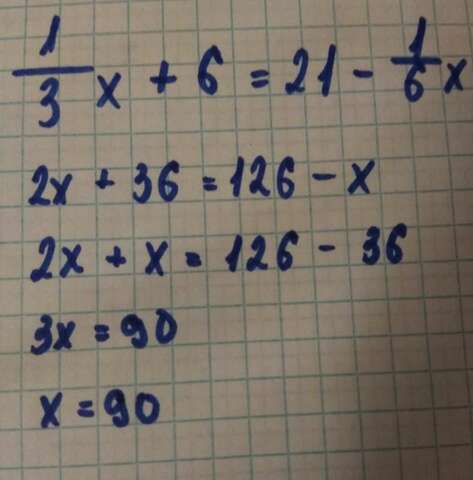 1/3 x + 6 = 21 - 1/6 x
2x + 36 = 126 - x
2x + x = 126 - 36
3x = 90
x = 90